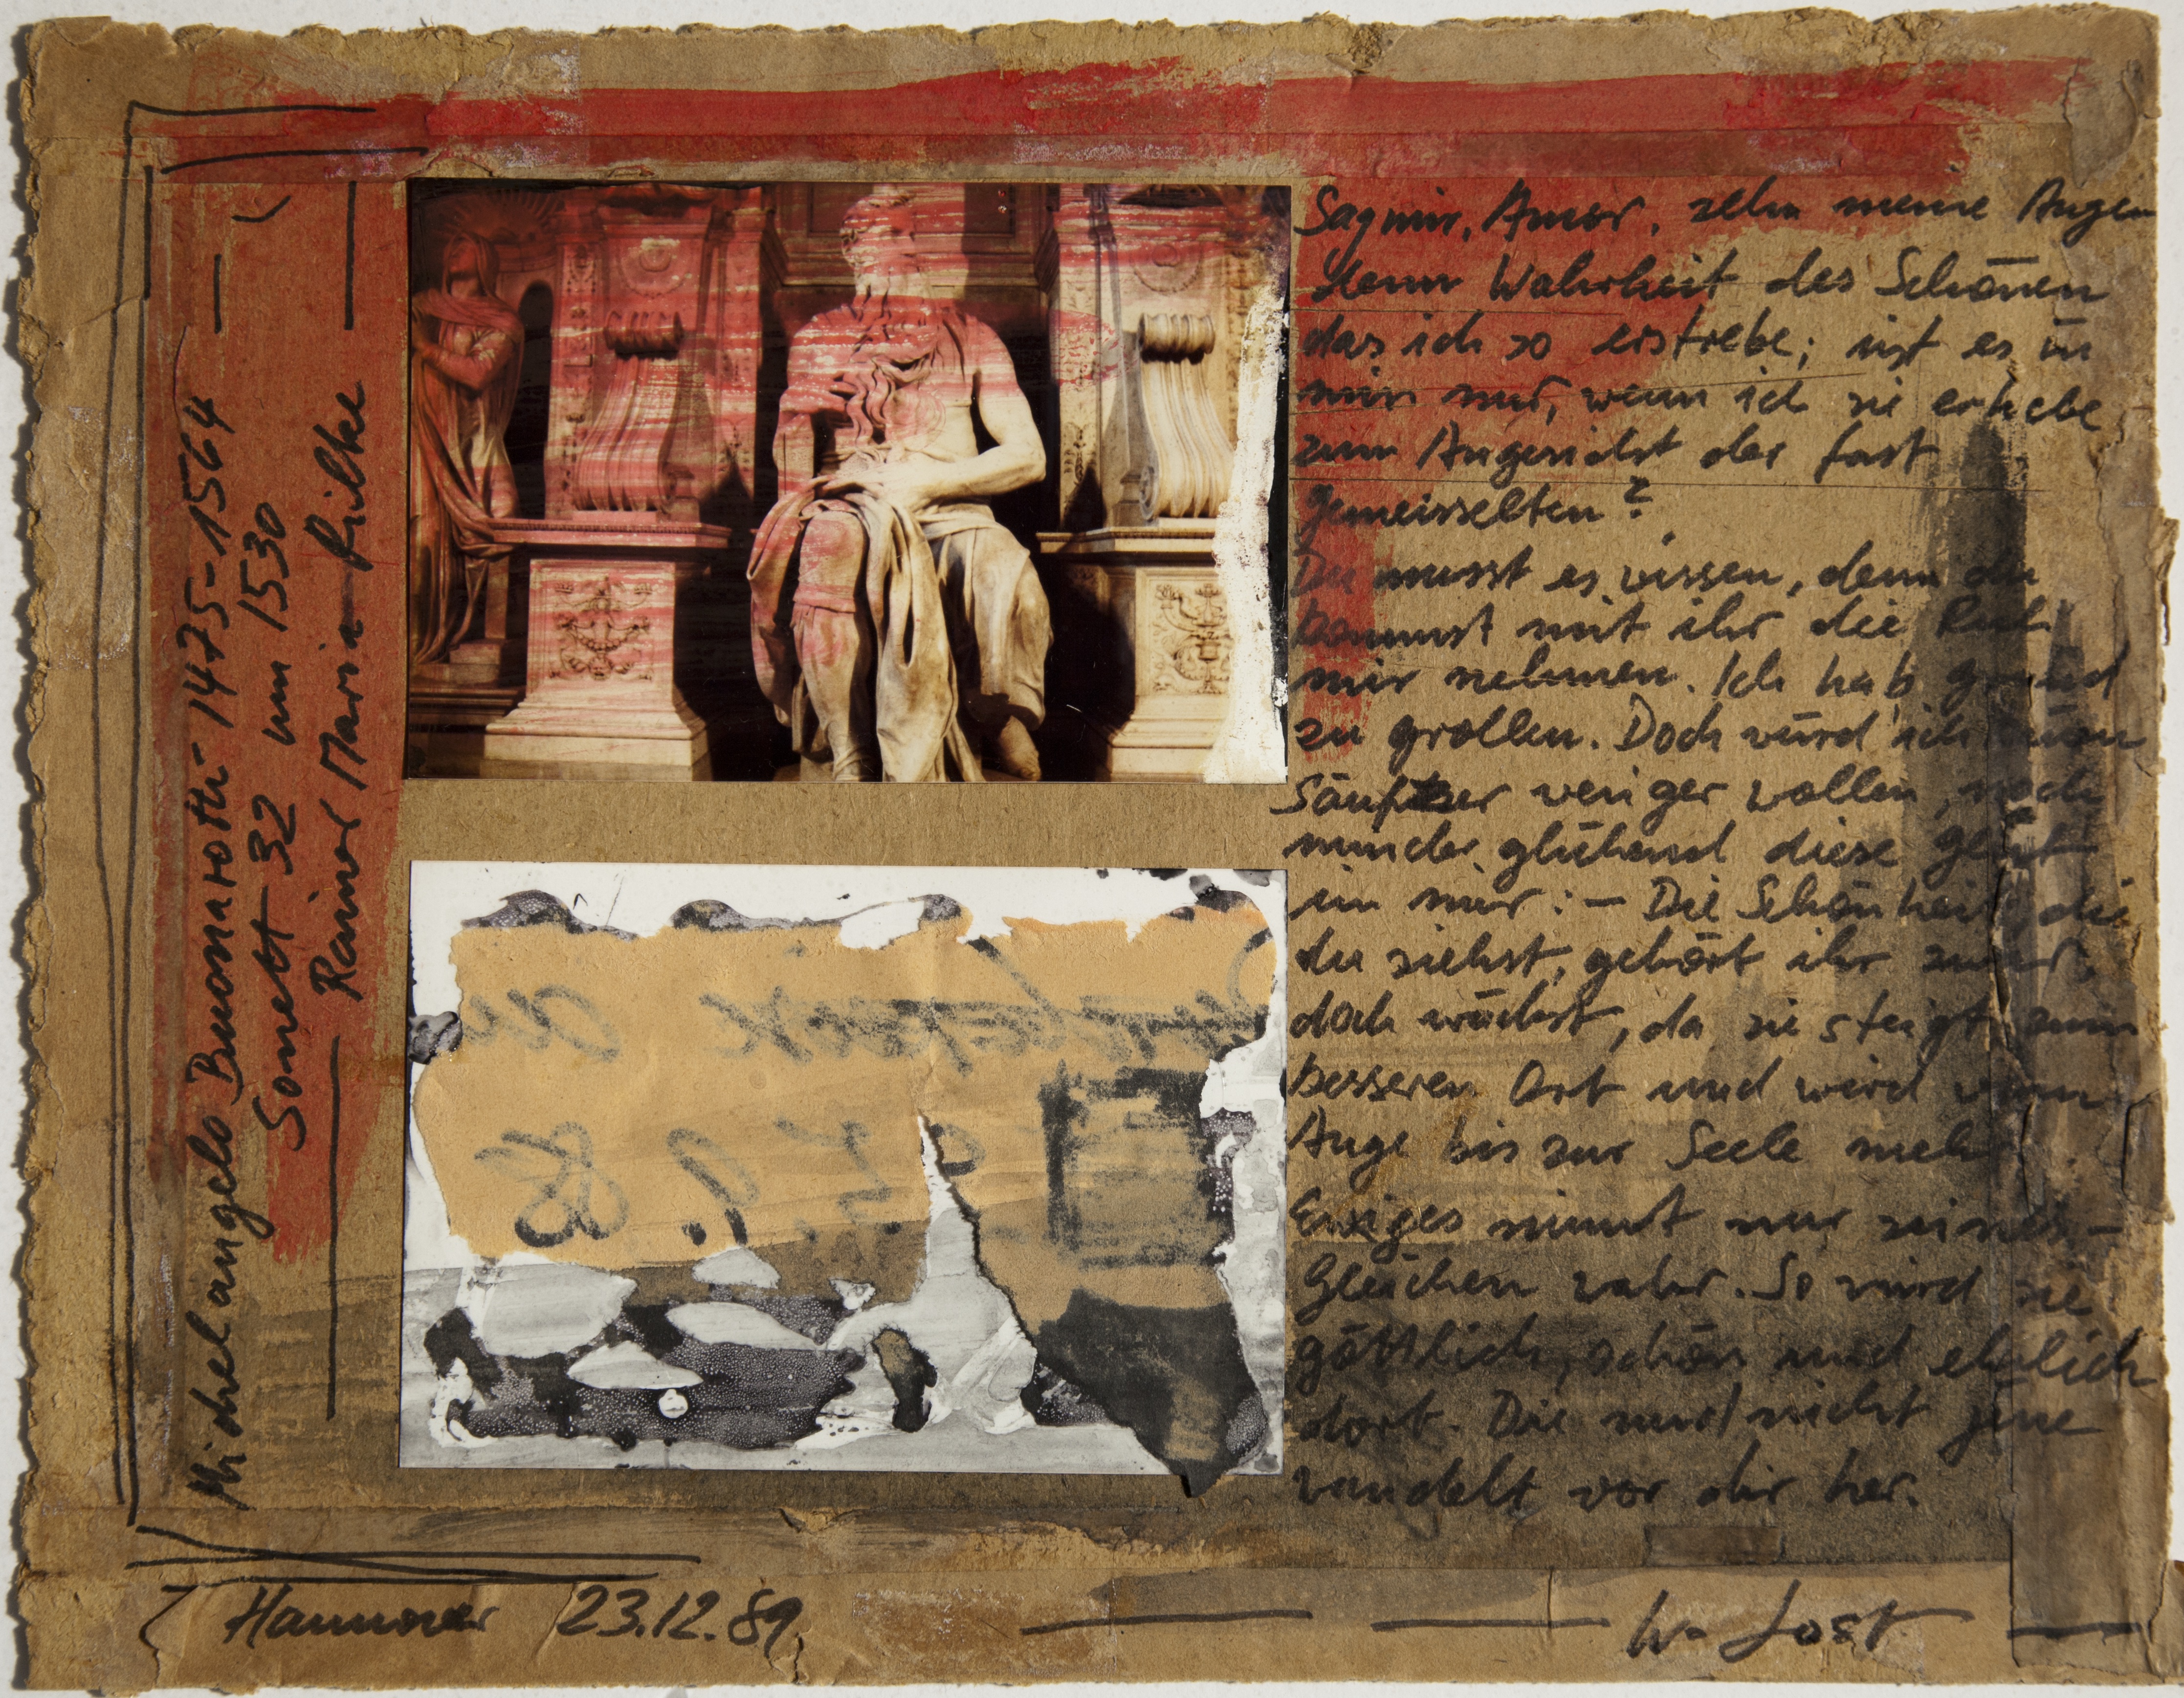 Michelangelo Buonarotti - 1475-1564 —
Sonett 32 um 1530
— Rainer Maria Rilke —
Sag mir, Amor, sehn meine Augen
denn Wahrheit des Schönen
das ich so erstrebe; ist es in
mir nur, wenn ich sie erhebe
zum Angesicht der fast
gemeisselten?
Du musst es wissen, denn du
kommst mit ihr die Ruh
mir nehmen. Ich hab grund
zu grollen. Doch würd ich
weniger wollen, noch
minder glühend diese
in mir: — Die Schönheit, die
du siehst, gehört ihr zwar,
doch wächst, da sie steigt zum
besseren Ort und wird vom
Auge bis zur Seele mehr.
Ewiges nimmt nur seines-
Gleichen wahr. So wird sie
göttlich, schön und ehrlich
dort. Die und nicht jene
wandelt vor dir her.
88
Hannover 23.12.89
W. Jost